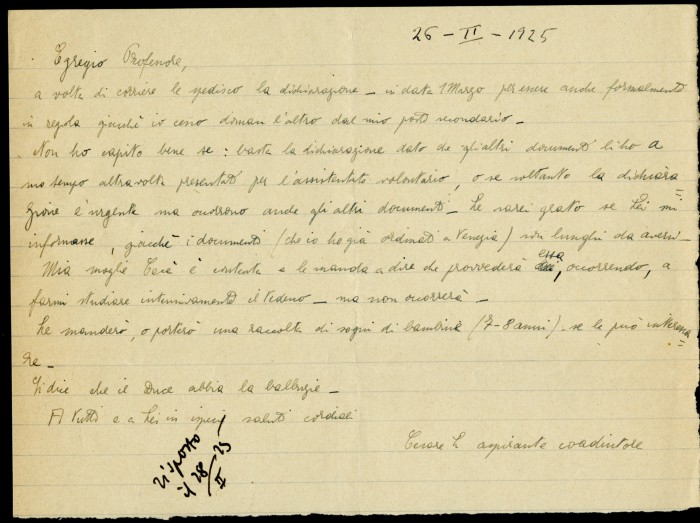 26 - II - 1925
Egregio Professore,
a volta di corriere le spedisco la dichiarazione - in data 1 Marzo per essere anche formalmente
in regola giacchè io cesso doman l'altro dal mio posto secondario -
Non ho capito bene se: basta la dichiarazione dato che gli altri documenti li ho a
suo tempo altra volta presentati per l'assistentato volontario, o se soltanto la dichiara=
zione è urgente ma occorrono anche gli altri documenti - Le sarei grato se Lei mi
informasse, giacchè i documenti (che io ho già ordinati a Venezia) son lunghi da aversi -
Mia moglie è contenta e le manda a dire che provvederà essa, occorrendo, a
farmi studiare intensivamente il tedesco - ma non occorrerà -
Le manderò, o porterò una raccolta di sogni di bambina (7-8 anni) - se le può interessa=
re -
Si dice che il Duce abbia la balbuzie -
A tutti e a Lei in ispecie saluti cordiali
Cesare L. aspirante coadiutore
risposto
il 28/II 25